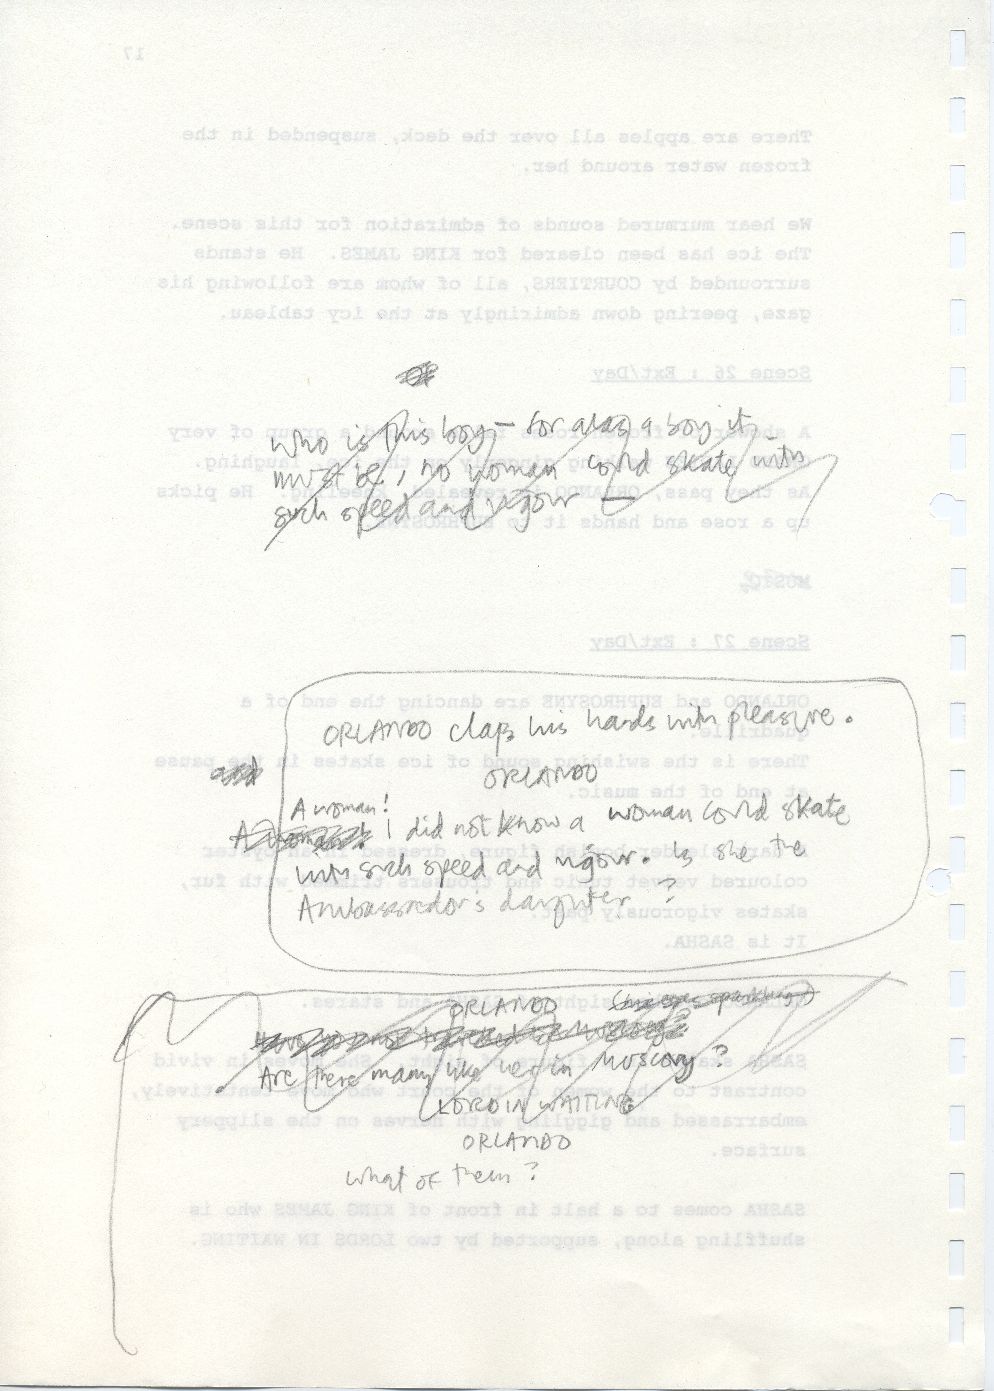 17
There are apples all over the deck, suspended in the
frozen water around her.
We hear murmured sounds of admiration for this scene.
The ice has been cleared for KING JAMES. He stands
surrounded by COURTIERS, all of whom are following his
gaze, peering down admiringly at the icy tableau.
Scene 26 : Ext/Day
Who is this boy – for alas a boy it
must be, no woman could skate with
such speed and vigour –
As they pass, ORLANDO is revealed, kneeling. He picks
up a rose and hands it to EUPHROSYNE.
MUSIC
Scene 27 : Ext/Day
ORLANDO and EUPHROSYNE are dancing the end of a
quadrille.
ORLANDO claps his hands with pleasure.
There is the swishing sound of ice skates in the pause
at end of the music.
ORLANDO
and
A woman!
I did not know a woman could skate
with such speed and vigour. Is she the
Ambassador's daughter?
coloured velvet tunic and trousers trimmed with fur,
skates vigorously past.
It is SASHA.
ORLANDO (his eyes sparkling)
and stares.
Are there many like her in Muscovy?
LORD IN WAITING
ORLANDO
What of them?
contrast to the women of the court who move tentatively,
embarrassed and giggling with nerves on the slippery
surface.
SASHA comes to a halt in front of KING JAMES who is
shuffling along, supported by two LORDS IN WAITING.